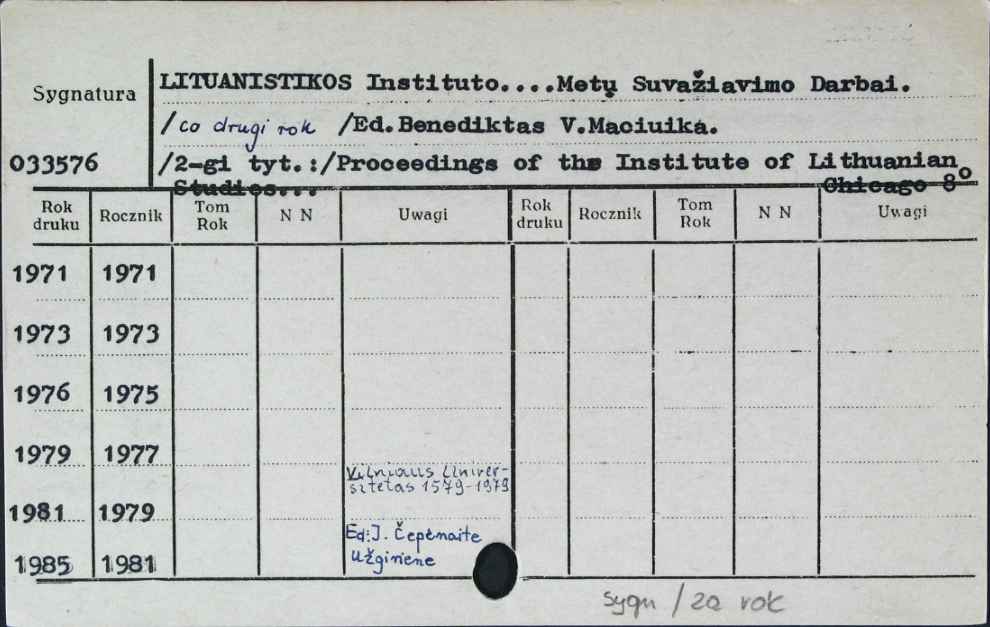 LITUANISTIKOS Instituto....Metų Suvažiavimo Darbai.
Sygnatura
/co drugi rok /Ed.Benediktas V.Maciuika.
033576 /2-gi tyt.:/Proceedings of the Institute of Lithuanian
Studies... Chicago 8°
Rok druku Rocznik Tom Rok N N Uwagi Rok druku Rocznik Tom Rok N N Uwagi
1971 1971
1973 1973
1976 1975
1979 1977
Vilniaus Univer-
sitetas 1579-1979
1981 1979
Ed: J. Čepėnaite
1985 1981 Užgirienė
sygn / za rok